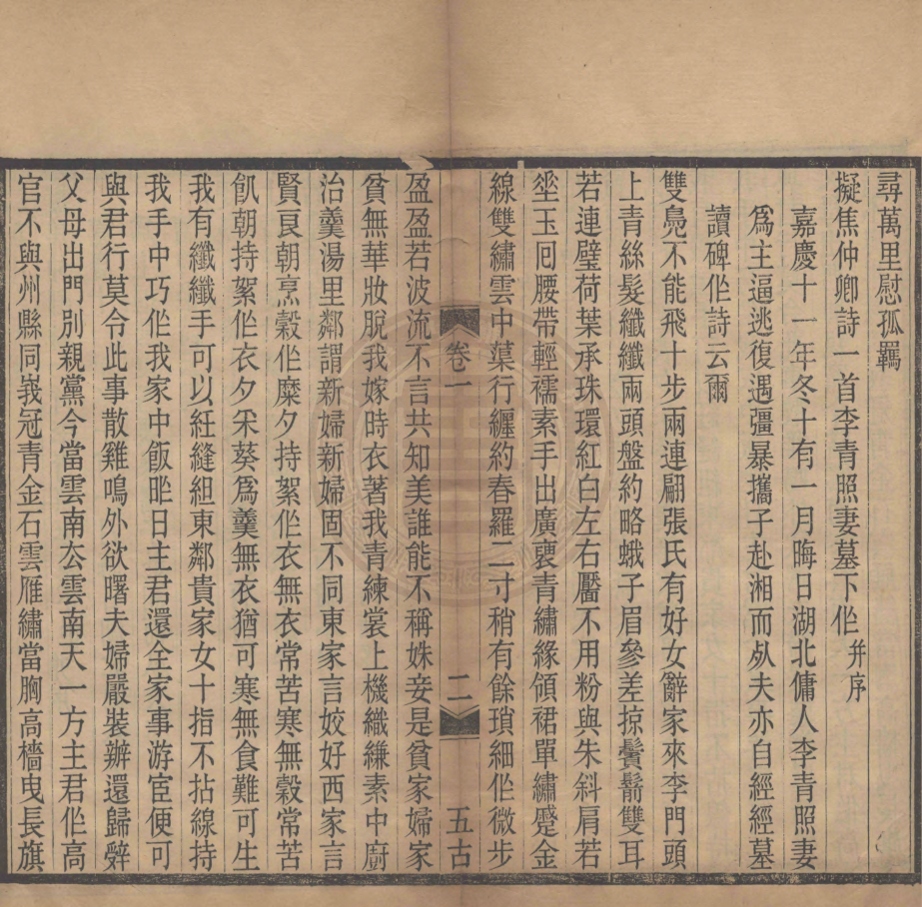 尋萬里慰孤羈
擬焦仲卿詩一首李青照妻墓下作并序
嘉慶十一年冬十有一月晦日湖北傭人李青照妻
爲主逼逃復遇彊暴攜子赴湘而死夫亦自經經墓
讀碑作詩云爾
雙鳧不能飛十步兩連翩張氏有好女辭家來李門頭
上青絲髮纖纖兩頭盤約略蛾子眉參差掠鬢鬅雙耳
若連璧荷葉承珠環紅白左右靨不用粉與朱斜肩若
坐玉回腰帶輕襦素手出廣褏青繡緣領裙單繡蹙金
線雙繡雲中葉行纏約春羅二寸稍有餘瑣細作微步
卷一
二
五古
盈盈若波流不言共知美誰能不稱姝妾是貧家婦家
貧無華妝脫我嫁時衣著我青練裳上機織縑素中廚
治羹湯里鄰謂新婦新婦固不同東家言姣好西家言
賢良朝烹穀作糜夕持絮作衣無衣常苦寒無穀常苦
飢朝持絮作衣夕采葵爲羹無衣猶可寒無食難可生
我有纖纖手可以紝縫組東鄰貴家女十指不拈線持
我手中巧作我家中飯昨日主君還全家事游宦便可
與君行莫令此事散雞鳴外欲曙夫婦嚴裝辦還歸辤
父母出門別親黨今當雲南去雲南天一方主君作高
官不與州縣同峩冠青金石雲雁繡當胸高檣曳長旗